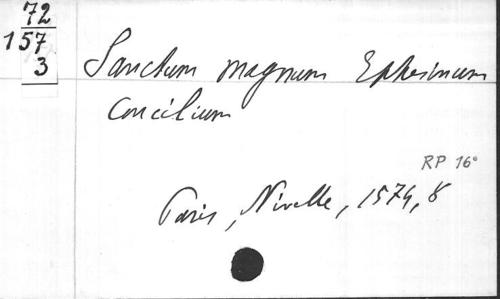 72
157
3
Sanctum magnum Ephesinum
Concilium
RP 16°
Paris, Nivelle, 1574, 8